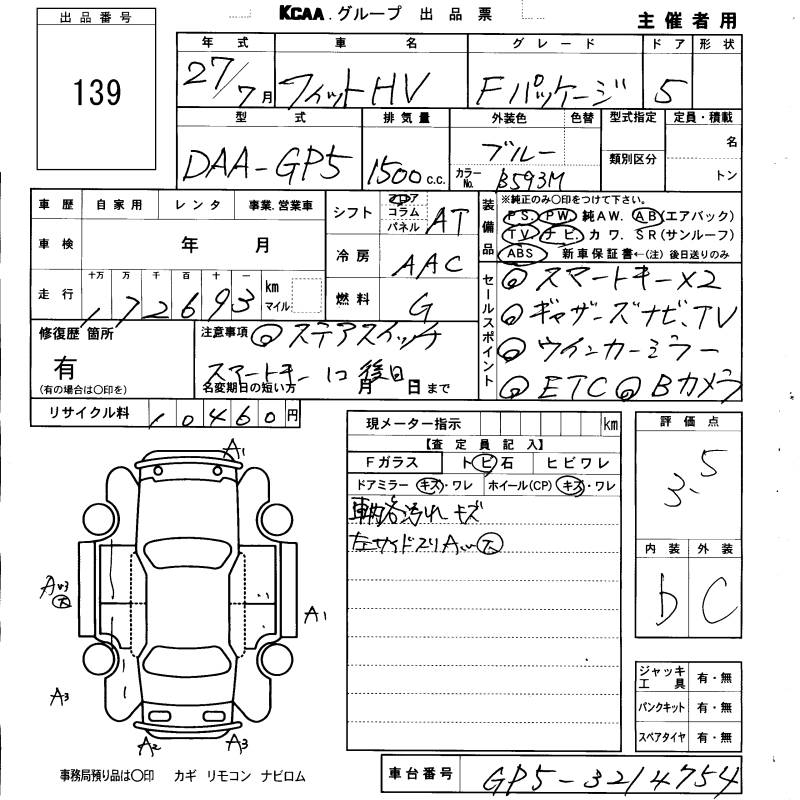 KCAA.グループ 出品票
主催者用
出品番号
139
年式 車名 グレード ドア 形状
27/7月 フィットHV Fパッケージ 5
型式 排気量 外装色 色替 型式指定 定員・積載
DAA-GP5 1500c.c. ブルー 名
類別区分
カラーNo. B593M トン
車歴 自家用 レンタ 事業.営業車
車検 年 月
走行 十万 万 千 百 十 一 km マイル
172693
シフト フロア コラム パネル AT
冷房 AAC
燃料 G
装備品
※純正のみ〇印をつけて下さい。
PS. PW. 純AW. AB(エアバック)
TV ナビ. カワ. SR(サンルーフ)
ABS 新車保証書←(注)後日送りのみ
セールスポイント
◎スマートキー×2
◎ギャザーズナビ、TV
◎ウインカーミラー
◎ETC ◎Bカメラ
修復歴 箇所
有
(有の場合は〇印を)
注意事項 ◎ステアスイッチ
スマートキー1コ後日
名変期日の短い方 月 日まで
リサイクル料 10460円
現メーター指示 km
【査定員記入】
Fガラス トビ石 ヒビワレ
ドアミラー キズ・ワレ ホイール(CP) キズ・ワレ
車内各汚れ キズ
左サイドスリA 大
評価点
3.5
内装 外装
b C
ジャッキ工具 有・無
パンクキット 有・無
スペアタイヤ 有・無
A1
A3
大
A1
A3
A2
A3
事務局預り品は〇印 カギ リモコン ナビロム
車台番号 GP5-3214754